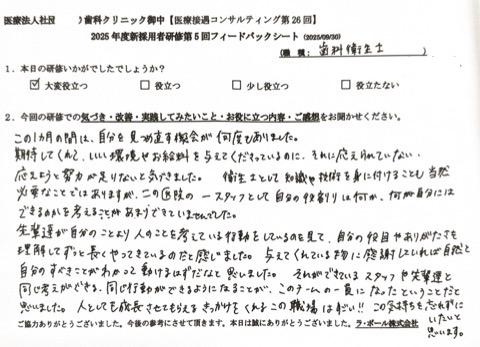 医療法人社団 )歯科クリニック御中【医療接遇コンサルティング第26回】
2025年度新採用者研修第5回フィードバックシート (2025/09/30)
(職種:歯科衛生士)
1.本日の研修いかがでしたでしょうか?
☑大変役立つ □役立つ □少し役立つ □役立たない
2.今回の研修での気づき・改善・実践してみたいこと・お役に立つ内容・ご感想をお聞かせください。
この1カ月の間は、自分を見つめ直す機会が何度もありました。
期待してくれて、いい環境やお給料を与えてくださっているのに、それに応えられていない、
応えようと努力が足りないと気づきました。 衛生士として知識や技術を身に付けることも当然
必要なことではありますが、この医院の一スタッフとして自分の役割りは何か、何が自分には
できるかを考えることがあまりできていませんでした。
先輩達が自分のことより人のことを考えている行動をしているのを見て、自分の役目やありがたさを
理解してずっと長くやってきているのだと感じました。与えてくれている物に感謝していれば自然と
自分のすべきことがわかって動けるはずだなと思いました。 それができているスタッフや先輩達と
同じ考えができる、同じ行動ができるようになることが、このチームの一員になったということだと
思いました。人としても成長させてもらえるきっかけをくれるこの職場はすごい!!この気持ちを忘れずに
いたいと
思います。
ご協力ありがとうございました。今後の参考にさせて頂きます。本日は誠にありがとうございました。ラ・ポール株式会社